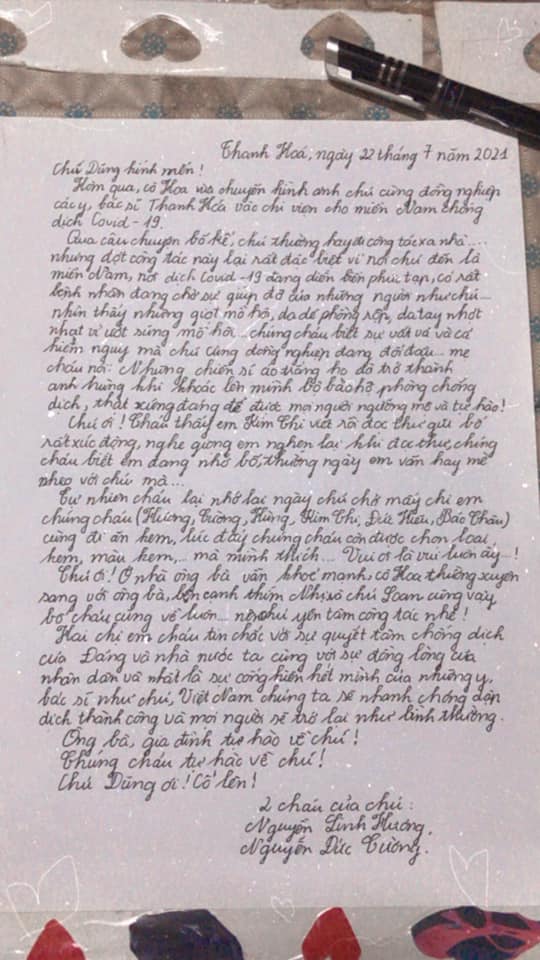 Thanh Hoá, ngày 22 tháng 7 năm 2021
Chú Dũng kính mến!
Hôm qua, cô Hoa vừa chuyển hình ảnh chú cùng đồng nghiệp
các y, bác sĩ Thanh Hóa vào chi viện cho miền Nam chống
dịch Covid-19.
Qua câu chuyện bố kể, chú thường hay đi công tác xa nhà....
nhưng đợt công tác này lại rất đặc biệt vì nơi chú đến là
miền Nam, nơi dịch Covid-19 đang diễn biến phức tạp, có rất
bệnh nhân đang chờ sự giúp đỡ của những người như chú...
nhìn thấy những giọt mồ hôi, da dẻ phồng rộp, da tay nhợt
nhạt vì ướt sũng mồ hôi... chúng cháu biết sự vất vả và cả
hiểm nguy mà chú cùng đồng nghiệp đang đối đầu... mẹ
cháu nói: Những chiến sĩ áo trắng họ đã trở thành
anh hùng khi khoác lên mình bộ bảo hộ phòng chống
dịch, thật xứng đáng để được mọi người ngưỡng mộ và tự hào!
Chú ơi! Cháu thấy em Kim Chi viết rồi đọc thư gửi bố
rất xúc động, nghe giọng em nghẹn lại khi đọc thư, chúng
cháu biết em đang nhớ bố, thường ngày em vẫn hay mè
nheo với chú mà...
Tự nhiên cháu lại nhớ lại ngày chú chở mấy chị em
chúng cháu (Hương, Tường, Hùng, Kim Chi, Đức Hiếu, Bảo Châu)
cùng đi ăn kem, lúc đấy chúng cháu còn được chọn loại
kem, màu kem,... mà mình thích... Vui ơi là vui luôn ấy...!
Chú ơi! Ở nhà ông bà vẫn khoẻ mạnh, cô Hoa thường xuyên
sang với ông bà, bên cạnh thím Nhị, và chú Loan cũng vậy
bố cháu cũng về luôn... nên chú yên tâm công tác nhé!
Hai chị em cháu tin chắc với sự quyết tâm chống dịch
của Đảng và nhà nước ta cùng với sự đồng lòng của
nhân dân và nhất là sự cống hiến hết mình của những y,
bác sĩ như chú, Việt Nam chúng ta sẽ nhanh chóng dập
dịch thành công và mọi người sẽ trở lại như bình thường.
Ông bà, gia đình tự hào về chú!
Chúng cháu tự hào về chú!
Chú Dũng ơi! Cố lên!
2 cháu của chú:
Nguyễn Linh Hương,
Nguyễn Đức Tường.